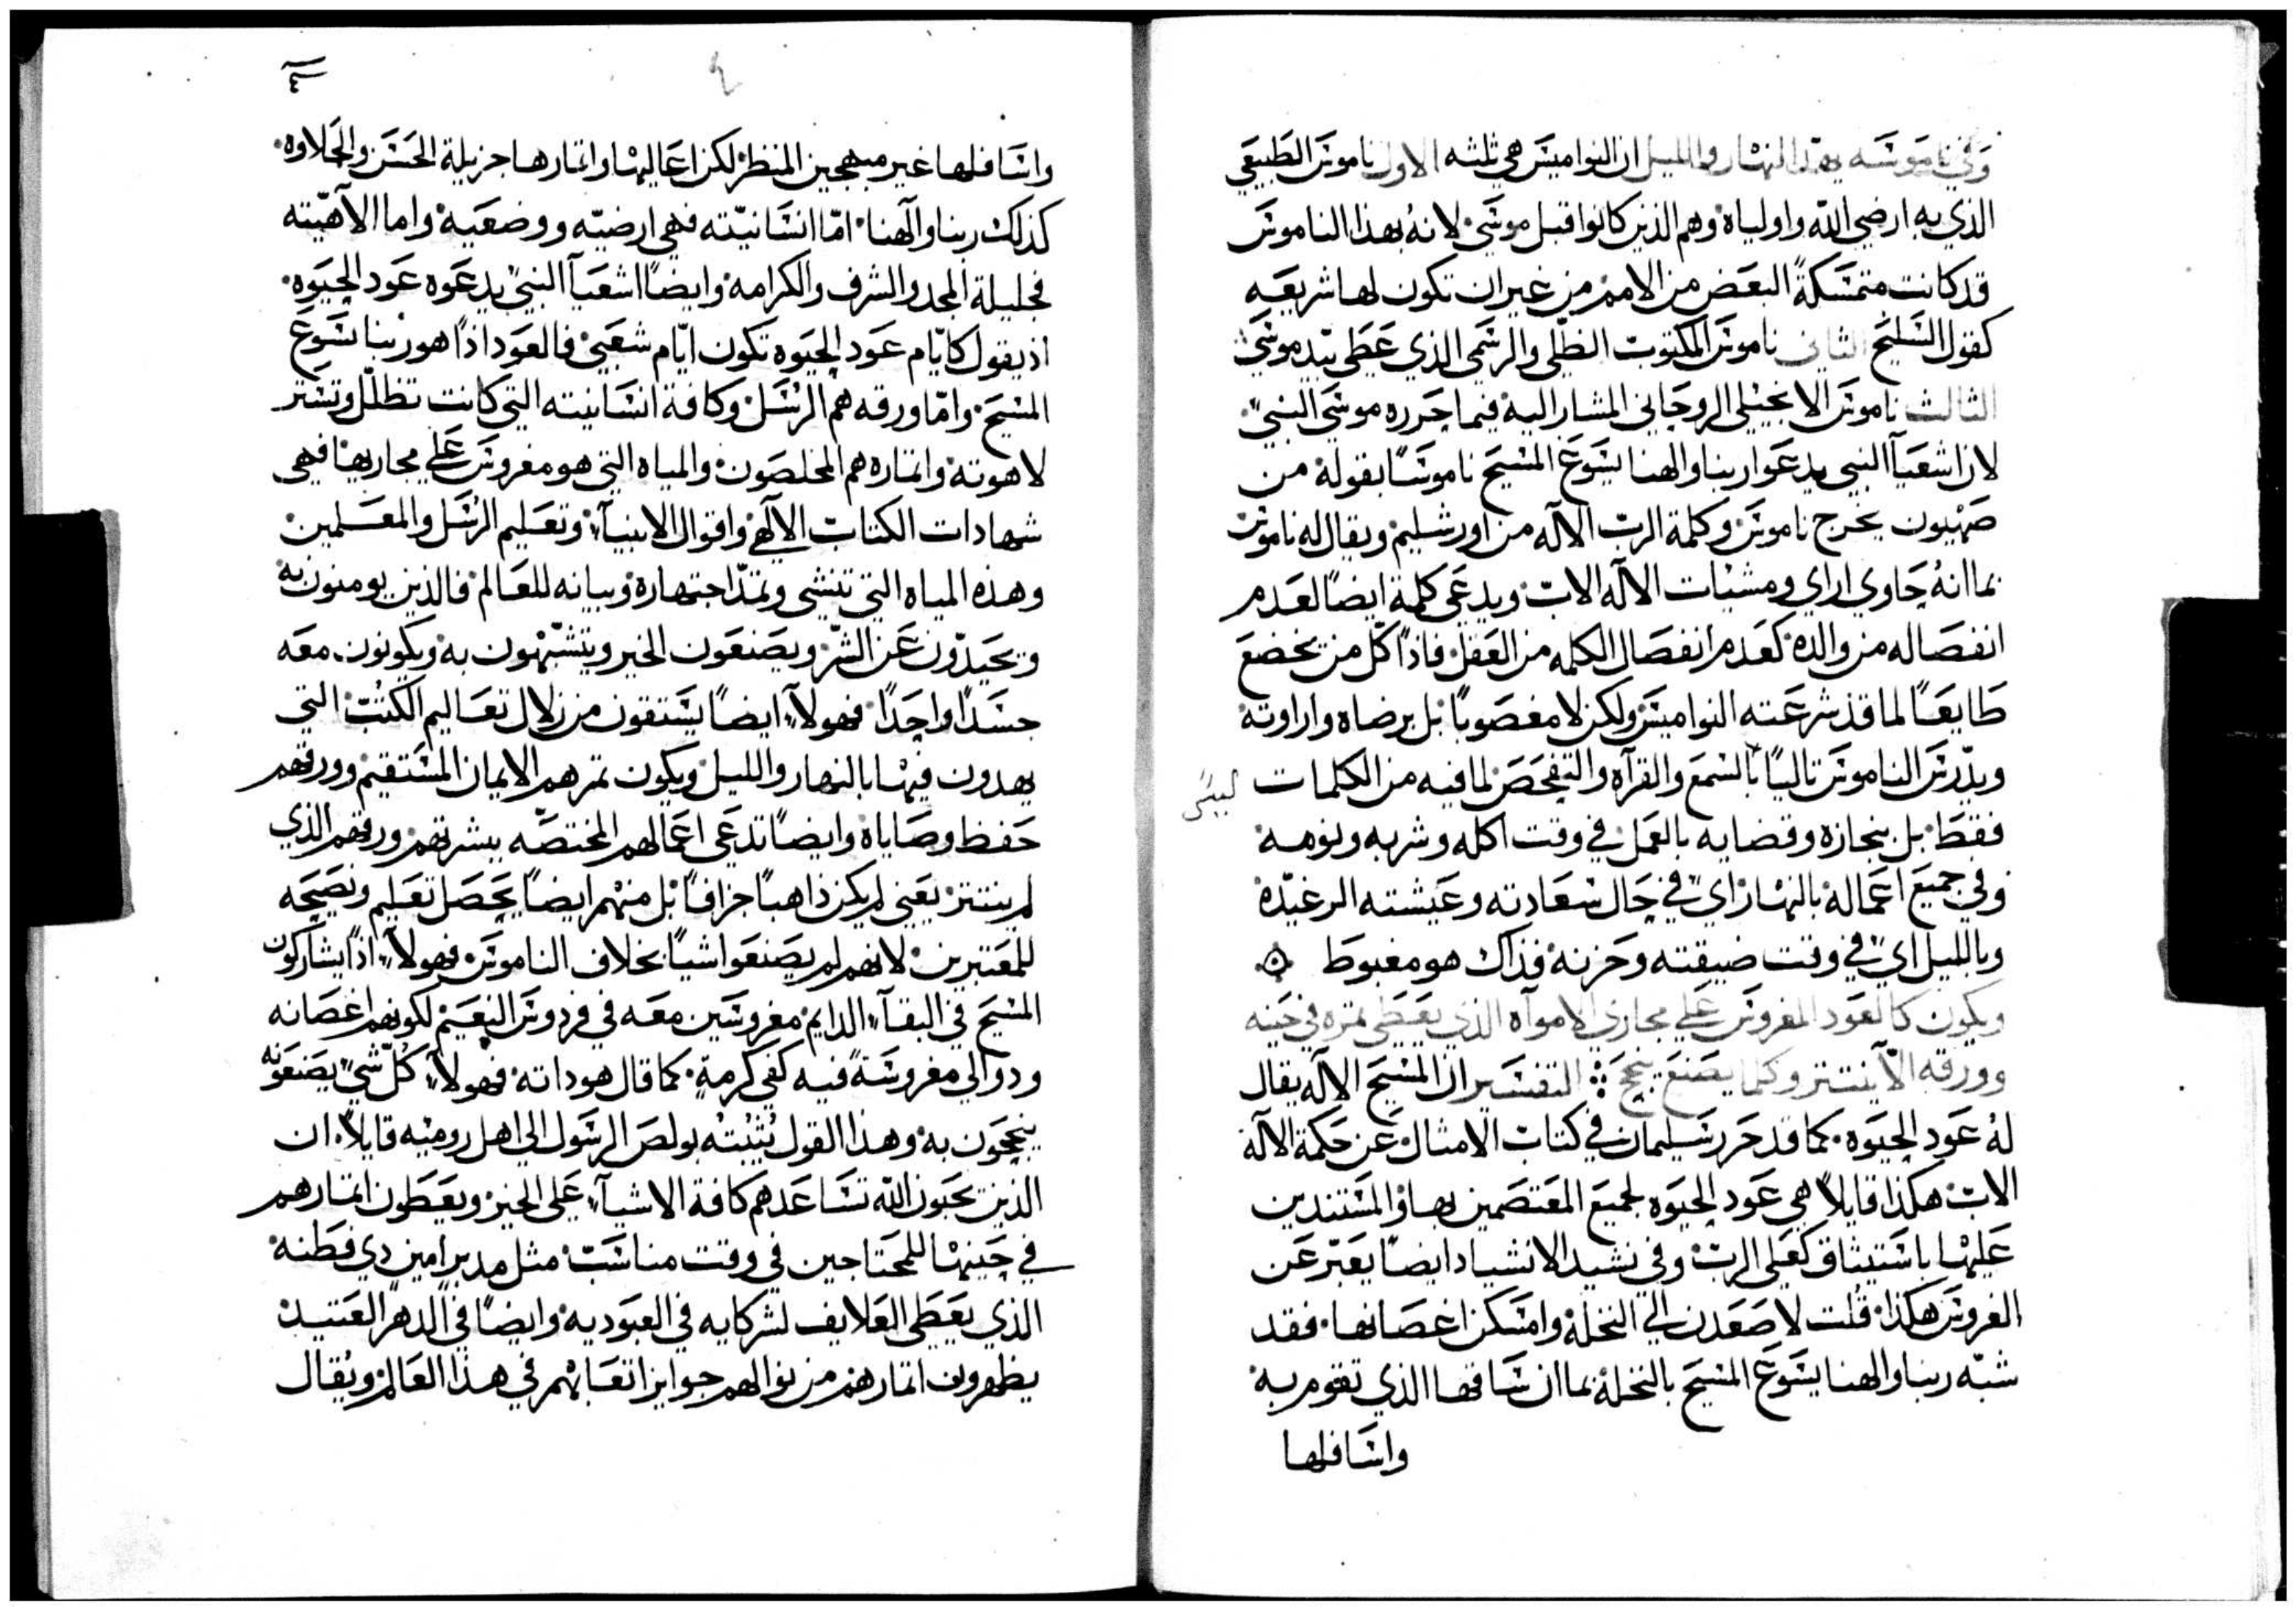 وفي ناموسه يهذ النهار والليل ان النواميس هي ثلثه الاول ناموس الطبيعي
الذي به ارضي الله واولياه وهم الذين كانوا قبل موسي لانه بهذا الناموس
قد كانت متمسكة البعض من الامم من غير ان تكون لها شريعه
كقول السليح الثاني ناموس المكتوب الظلي والرسمي الذي عطي بيد موسي
الثالث ناموس الانجيلي الروحاني المشار اليه فيما حرره موسي النبي
لان اشعيآ النبي يدعوا ربنا والهنا يسوع المسيح ناموسًا بقوله من
صهيون يخرج ناموس وكلمة الرب الآله من اورشليم ويقال له ناموس
بما انه حاوي اراي ومشيات الآله الاب ويدعي كلمة ايضًا لعدم
انفصاله من والده كعدم انفصال الكلمه من العقل فاذًا كل من يخضع
طايعًا لما قد شرعته النواميس ولكن لا مغصوبًا بل برضاه وارادته
ويدرس الناموس تاليًا بالسمع والقرآه والتفحص لما فيه من الكلمات ليس
فقط بل بنجازه وقضايه بالعمل في وقت اكله وشربه ونومه
وفي جميع اعماله بالنهار اي في حال سعادته وعيشته الرغيده
وبالليل اي في وقت ضيقته وحزنه فذاك هو مغبوط
ويكون كالعود المغروس علي مجاري الامواه الذي يعطي ثمره في حينه
وورقه لا ينتثر وكلما يصنع ينجح التفسير ان المسيح الآله يقال
له عود الحيوه كما قد حرر سليمان في كتاب الامثال عن حكمة الآله
الاب هكذا قايلاً هي عود الحيوه لجميع المعتصمين بها والمستندين
عليها باستيثاق كعلي الرب وفي نشيد الانشياد ايضًا يعبر عن
الغروس هكذا قلت لاصعدن الي النخلة وامسكن اغصانها فقد
شبه ربنا والهنا يسوع المسيح بالنخلة بما ان ساقها الذي تقوم به
واسافلها
واسافلها غير مبهجين المنظر لكن اعاليها واثمارها جزيلة الحسن والحلاوه
كذلك ربنا وآلهنا امّا انسانيّته فهي ارضيّه ووضعيه واما الآهيّته
فجليلة المجد والشرف والكرامه وايضًا اشعيآ النبي يدعوه عود الحيوه
اذ يقول كايّام عود الحيوه تكون ايّام شعبي فالعود اذًا هو ربنا يسوع
المسيح وامّا ورقه هم الرسل وكافة انسانيته التي كانت تظلّل وتستر
لاهوته واثماره هم المخلصون والمياه التي هو مغروس علي مجاريها فهي
شهادات الكتاب الالهي واقوال الانبيآ وتعليم الرسل والمعلمين
وهذه المياه التي تنشي وتمدّ اجتهاره وبيانه للعالم فالذين يومنون به
ويحيدّون عن الشرّ ويصنعون الخير ويتشبّهون به ويكونون معه
جسدًا واحدًا فهولآ ايضًا يستقون من زلال تعاليم الكتب التي
يهدون فيها بالنهار والليل ويكون ثمرهم الايمان المستقيم وورقهم
حفظ وصاياه وايضًا تدعي اعمالهم المختصّه بيشرتهم ورقهم الذي
لم ينتثر يعني لم يكن ذاهبًا جزافًا بل منهم ايضًا يحصل تعليم ونصيحه
للمعتبرين لانهم لم يصنعوا شيًا بخلاف الناموس فهولآ اذًا يشاركون
المسيح في البقآ الدايم مغروسين معه في فردوس النعيم لكونهم اغصانه
ودوالي مغروسةً فيه كفي كرمةٍ كما قال هو ذاته فهولآ كلّ شي يصنعونه
ينجحون به وهذا القول يُثبته بولص الرسول الي اهل روميه قايلاً ان
الذين يحبون الله تساعدهم كافة الاشيآ علي الخير ويعطون اثمارهم
في حينها للمحتاجين في وقت مناسب مثل مدبر امين ذي فطنه
الذي يعطي العلايف لشركايه في العبوديه وايضًا في الدهر العتيد
يظهرون اثمارهم من نوالهم جوايز اتعابهم في هذا العالم ويُقال